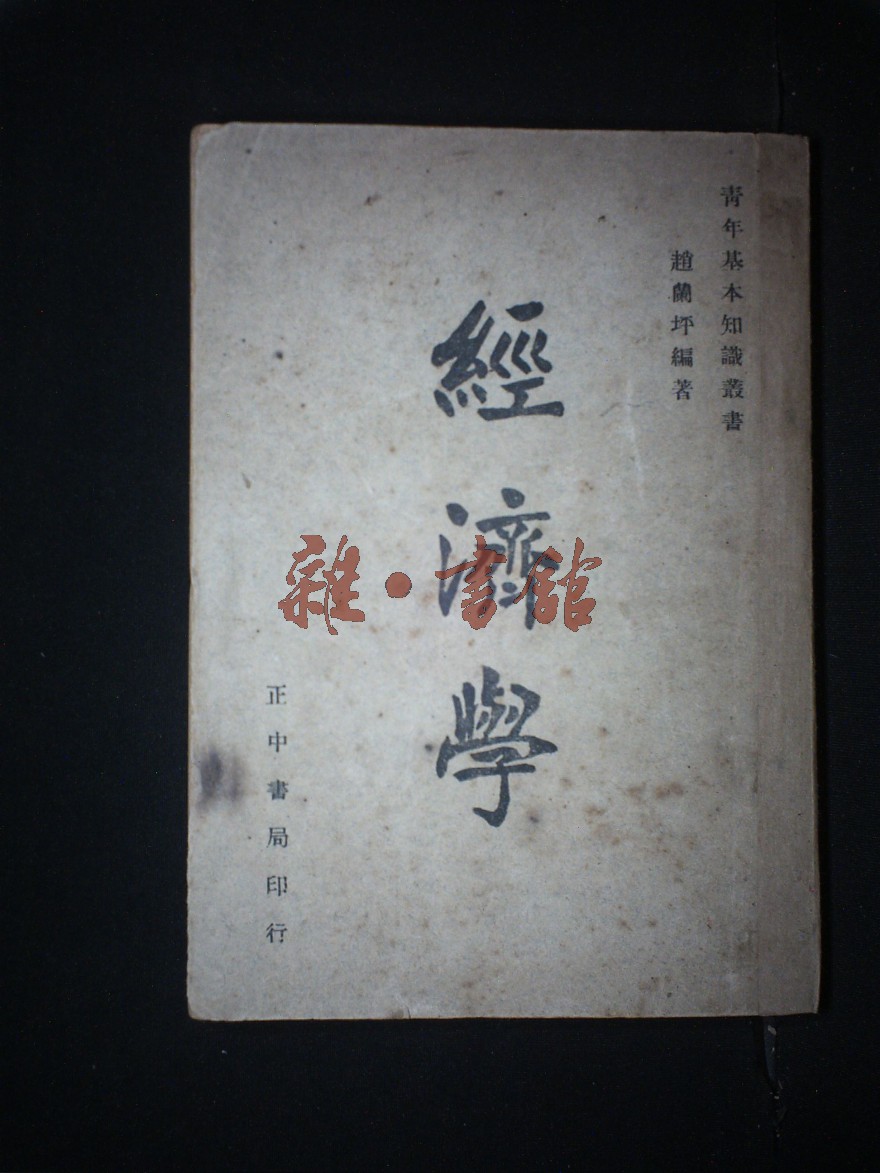 青年基本知識叢書
趙蘭坪編著
經濟學
正中書局印行
雜·書館